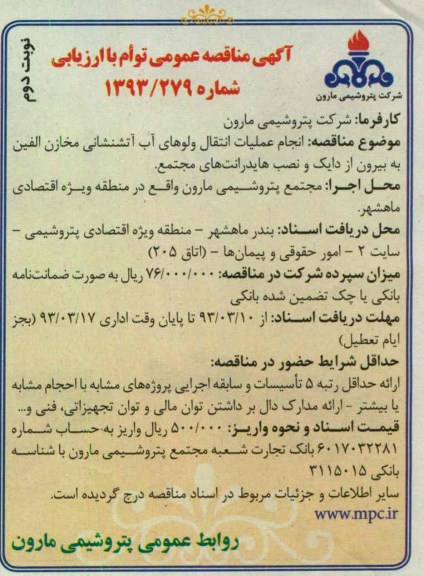 نوبت دوم
آگهی مناقصه عمومی توأم با ارزیابی
شماره ۱۳۹۳/۲۷۹
شرکت پتروشیمی مارون
کارفرما: شرکت پتروشیمی مارون
موضوع مناقصه: انجام عملیات انتقال ولوهای آب آتشنشانی مخازن الفین
به بیرون از دایک و نصب هایدرانت‌های مجتمع.
محل اجرا: مجتمع پتروشیمی مارون واقع در منطقه ویژه اقتصادی
ماهشهر.
محل دریافت اسناد: بندر ماهشهر - منطقه ویژه اقتصادی پتروشیمی -
سایت ۲ - امور حقوقی و پیمان‌ها - (اتاق ۲۰۵)
میزان سپرده شرکت در مناقصه: ۷۶/۰۰۰/۰۰۰ ریال به صورت ضمانت‌نامه
بانکی یا چک تضمین شده بانکی
مهلت دریافت اسناد: از ۹۳/۰۳/۱۰ تا پایان وقت اداری ۹۳/۰۳/۱۷ (بجز
ایام تعطیل)
حداقل شرایط حضور در مناقصه:
ارائه حداقل رتبه ۵ تأسیسات و سابقه اجرایی پروژه‌های مشابه با احجام مشابه
یا بیشتر - ارائه مدارک دال بر داشتن توان مالی و توان تجهیزاتی، فنی و...
قیمت اسناد و نحوه واریز: ۵۰۰/۰۰۰ ریال واریز به حساب شماره
۶۰۱۷۰۳۲۲۸۱ بانک تجارت شعبه مجتمع پتروشیمی مارون با شناسه
بانکی ۳۱۱۵۰۱۵
سایر اطلاعات و جزئیات مربوط در اسناد مناقصه درج گردیده است.
www.mpc.ir
روابط عمومی پتروشیمی مارون